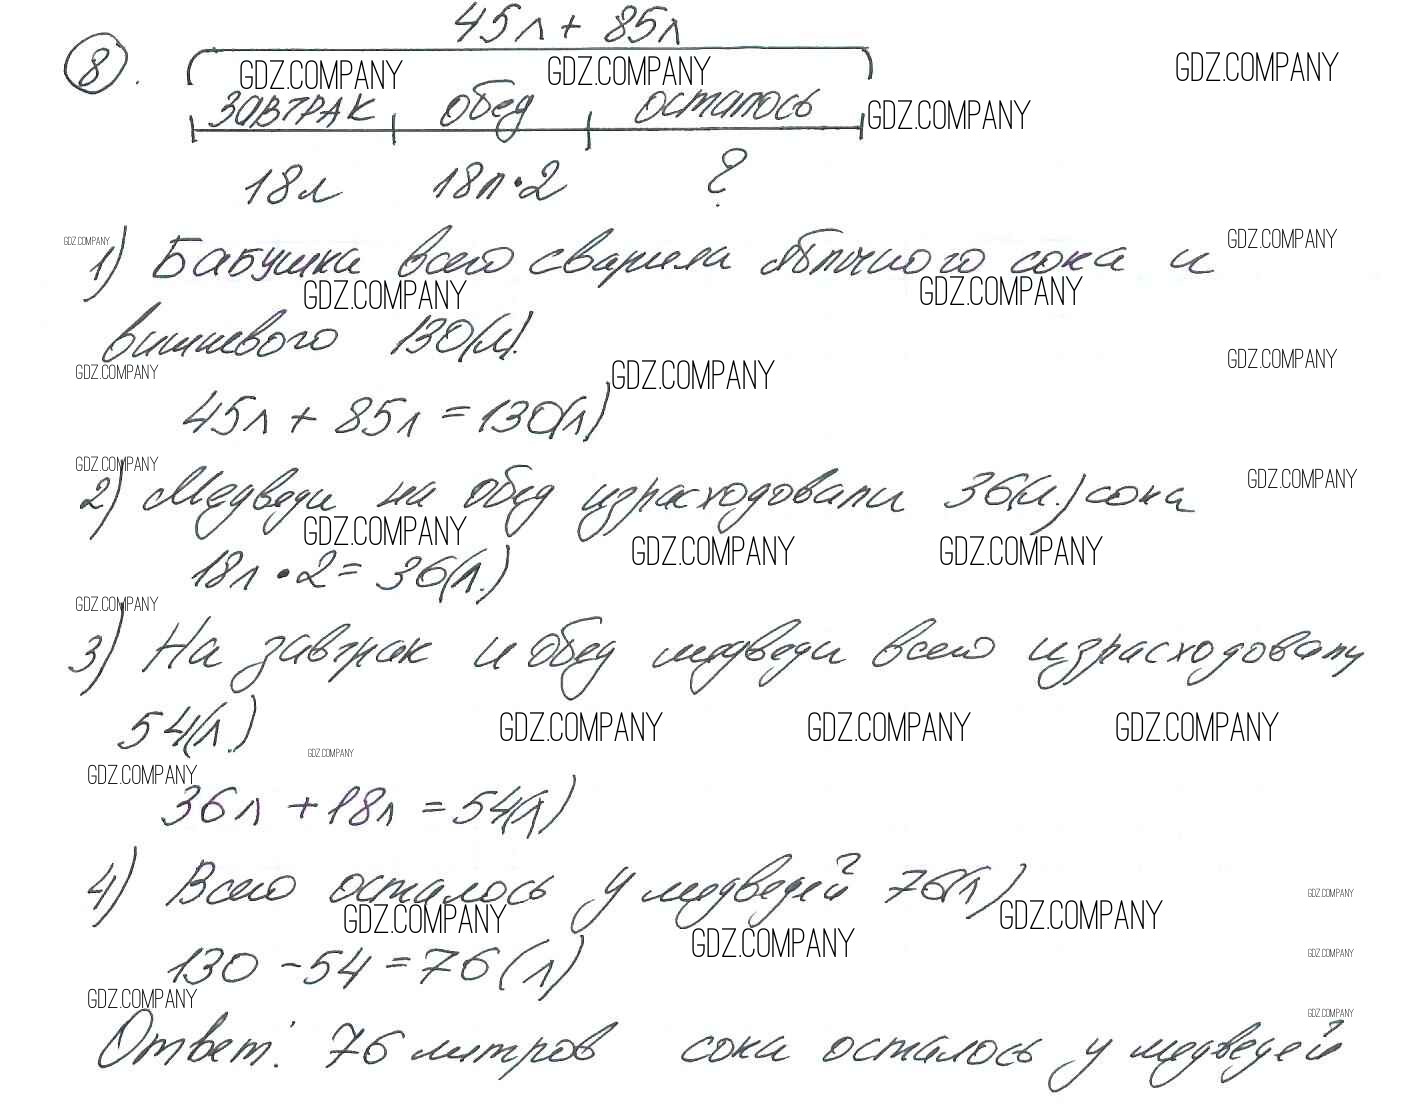 45л + 85л
8.
GDZ.COMPANY GDZ.COMPANY GDZ.COMPANY
завтрак обед осталось GDZ.COMPANY
18л 18л·2 ?
GDZ.COMPANY 1) Бабушка всего сварила яблочного сока и GDZ.COMPANY
GDZ.COMPANY GDZ.COMPANY
вишневого 130(л).
GDZ.COMPANY GDZ.COMPANY GDZ.COMPANY
45л + 85л = 130(л)
GDZ.COMPANY GDZ.COMPANY
2) Медведи на обед израсходовали 36(л.) сока
GDZ.COMPANY GDZ.COMPANY GDZ.COMPANY
18л · 2 = 36(л.)
GDZ.COMPANY
3) На завтрак и обед медведи всего израсходовали
54(л.) GDZ.COMPANY GDZ.COMPANY GDZ.COMPANY
GDZ.COMPANY GDZ.COMPANY
36л + 18л = 54(л)
4) Всего осталось у медведей 76(л) GDZ.COMPANY
GDZ.COMPANY GDZ.COMPANY GDZ.COMPANY
130 - 54 = 76(л) GDZ.COMPANY
GDZ.COMPANY GDZ.COMPANY
Ответ: 76 литров сока осталось у медведей